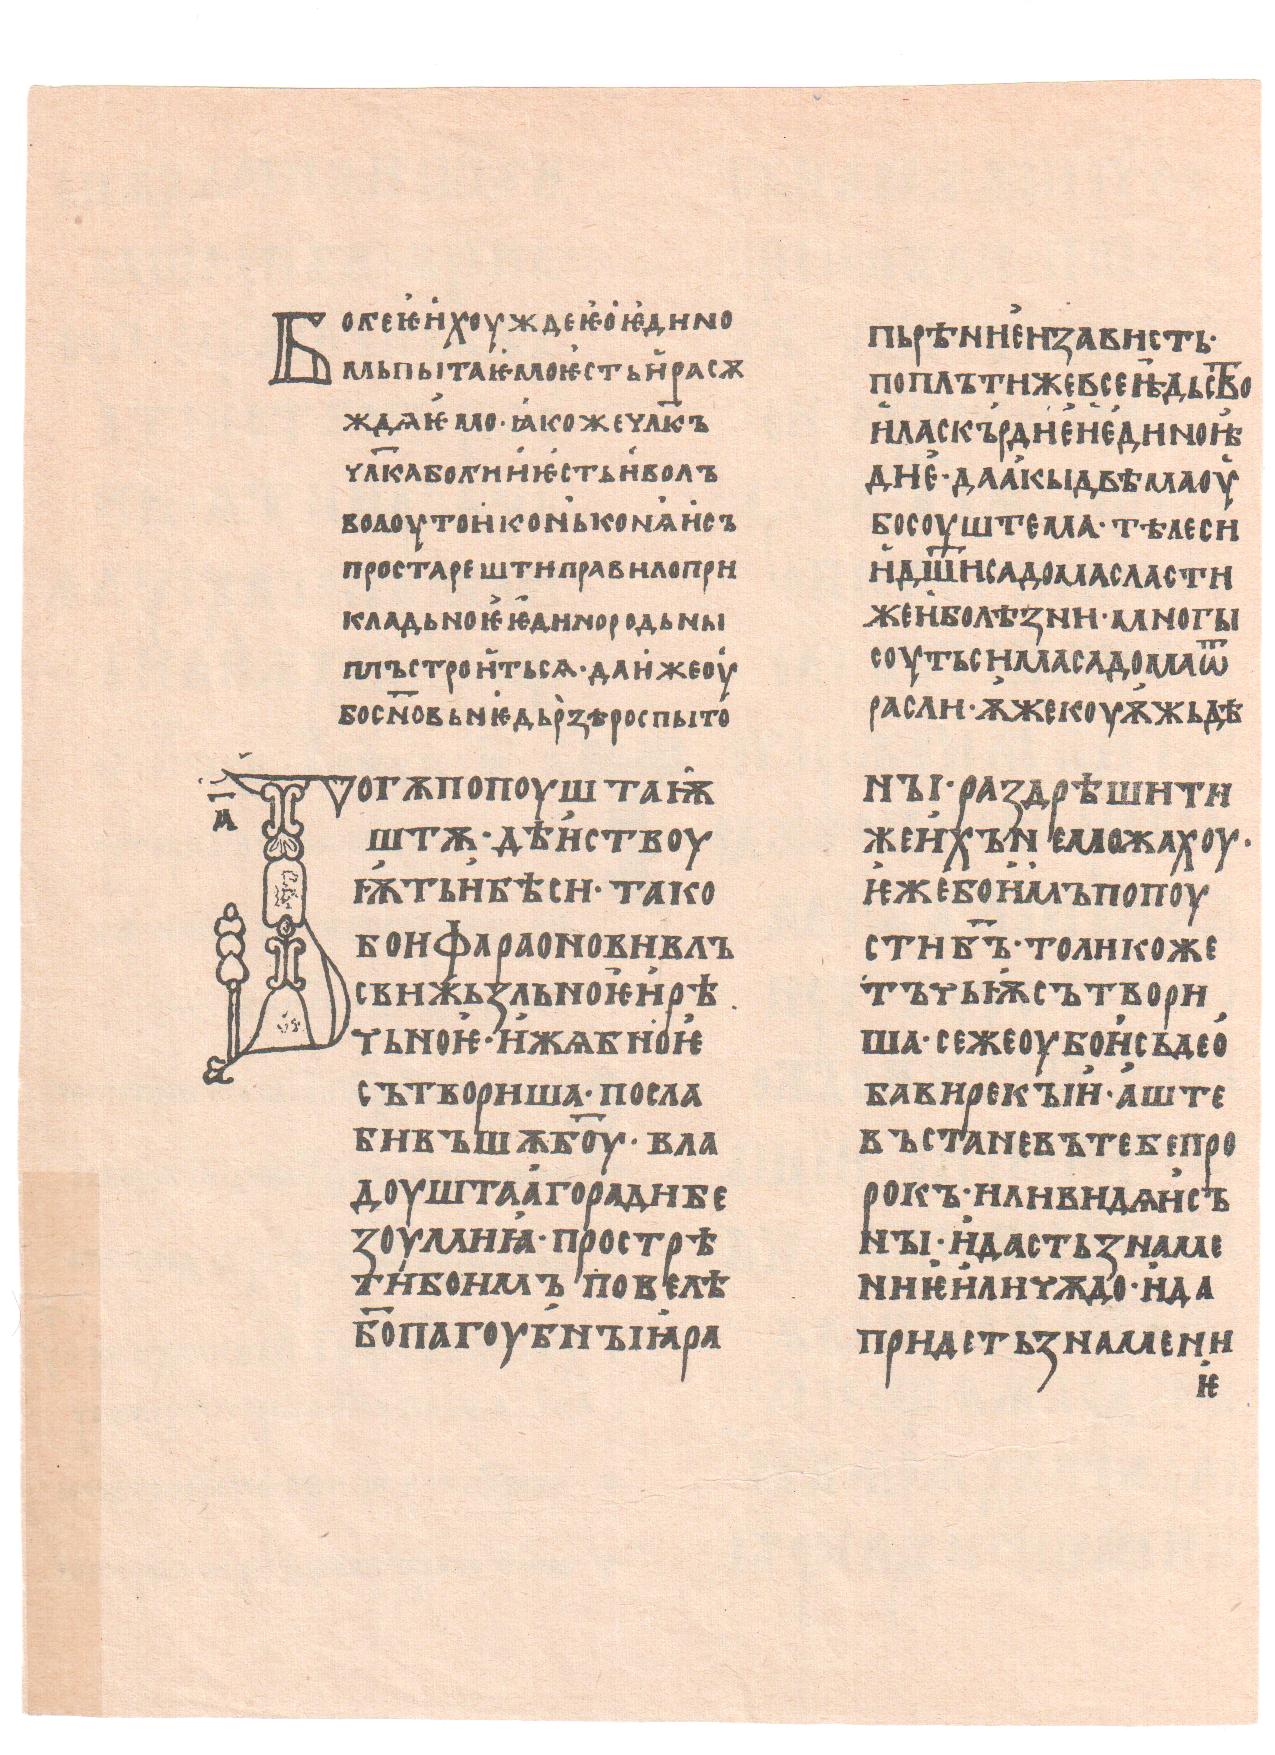 Болеѥ и хоуждеѥ о ѥдино
мь пытаѥмо ѥсть и расѫ
ждаѥмо · ꙗкоже чл҃къ
чл҃ка болии ѥсть и волъ
волоу то и конь конѧ и съ
простарешти правило при
кладьноѥ ѥдинородьны
плъ строитьсѧ · да иже оу
бо сн҃овьнѥ дьрзѣ роспыто
а҃
Тогѫ попоуштаѭ
штѫ · дѣиствоу
ѭть и бѣси · тако
бо и фараонови вл
сви жьзльноѥ и рѣ
чьноѥ · и жѧбноѥ
сътвориша · посла
бивъшѫ бо҃у · вла
доуштаа го ради бе
зоумниꙗ · прострѣ
ти бо имъ повелѣ
б҃о пагоубнꙑꙗ ра
пьрѣние и зависть ·
по плъти же всеѥдьс҃тво
и ласкърдие неединоѥ
дние · да акы двѣма оу
бо соуштема · тѣлеси
и дш҃и сама дома сласти
же и болѣзни · многы
соуть си има сама дома ѿ
расли · ѫже коуѫжьдѣ
нꙑ · раздрѣшити
же ихъ не можахоу ·
ѥже бо имъ попоу
сти б҃ъ · толико же
тъчьѭ сътвори
ша · се же оубо и съдео
ба ви рекꙑи · аште
въстане въ тебе про
рокъ · или видѧи съ
нꙑ · и дасть знаме
ниѥ или чѫдо · и да
придеть знамени
ѥ